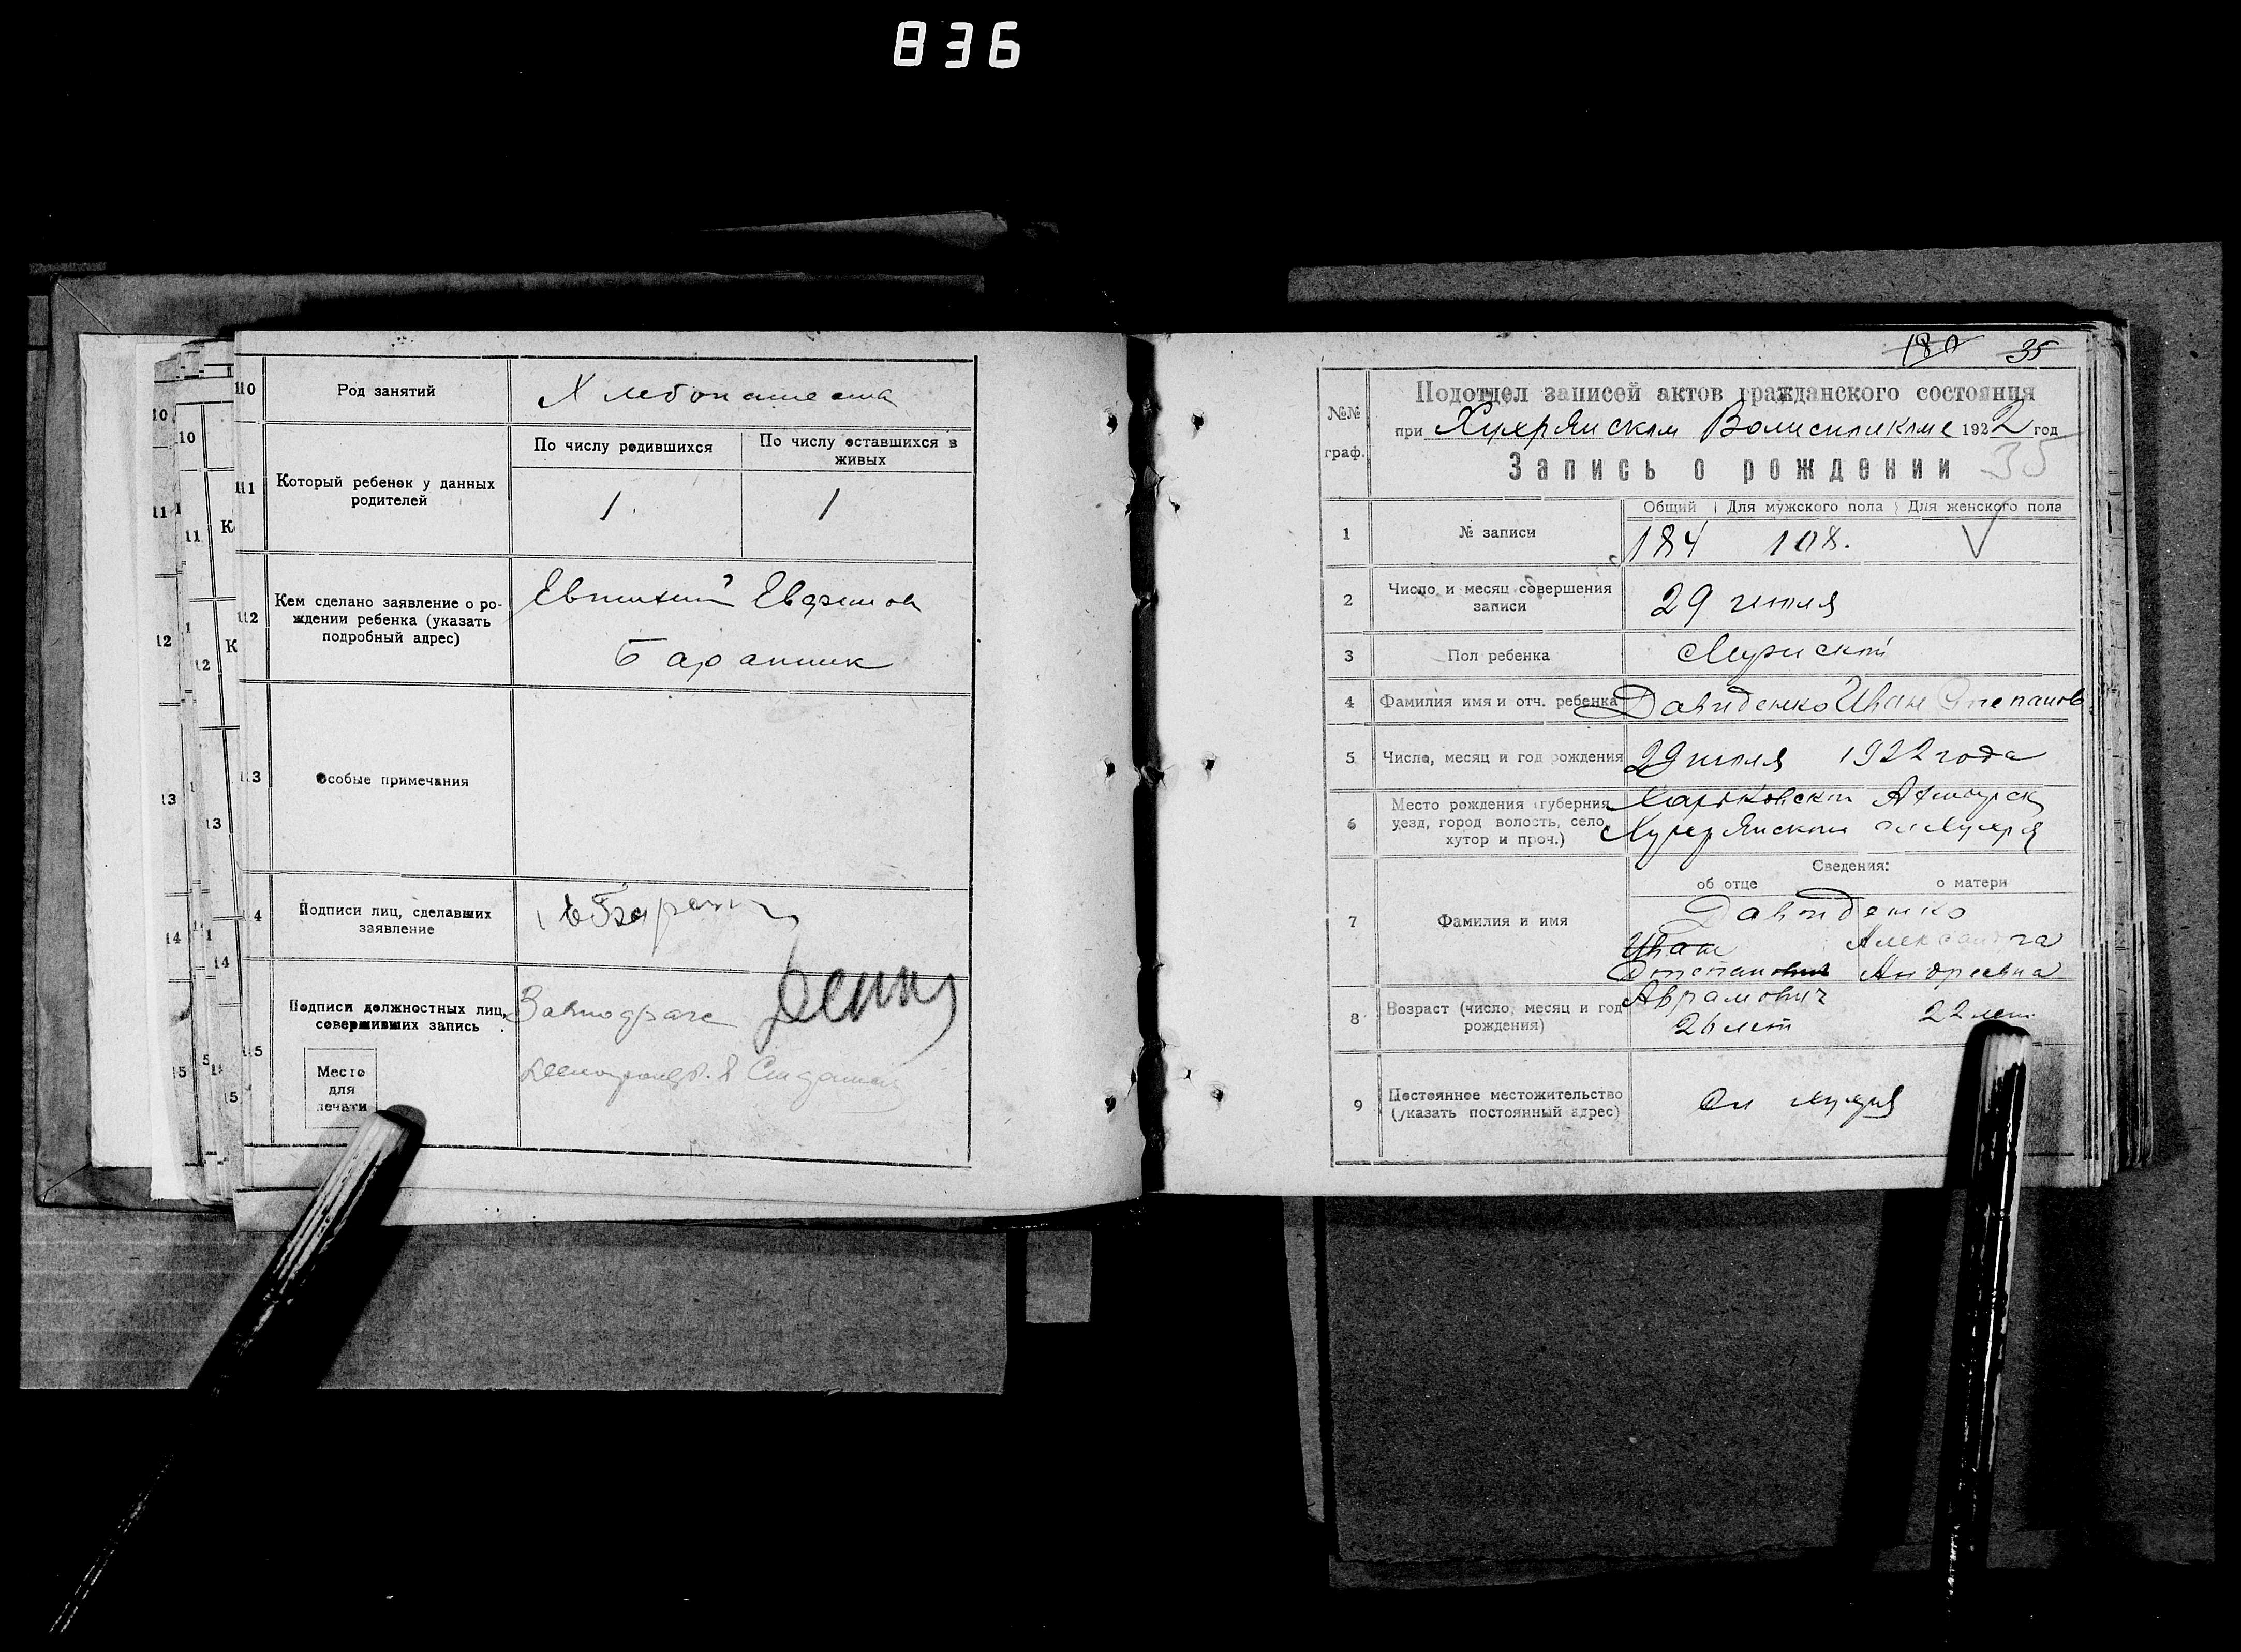 836
10
Род занятий
Хлебопашество
11
Который ребенок у данных
родителей
По числу родившихся
По числу оставшихся в
живых
1.
1
12
Кем сделано заявление о ро-
ждении ребенка (указать
подробный адрес)
Евтихий
Баранник
13
Особые примечания
14
Подписи лиц, сделавших
заявление
15
Подписи должностных лиц,
совершивших запись
Место
для
печати
180 35
№№
граф.
Подотдел записей актов гражданского состояния
при Хухрянском Волисполкоме 1922 год
Запись о рождении 35
1
№ записи
Общий Для мужского пола Для женского пола
184 108. V
2
Число и месяц совершения
записи
29 июля
3
Пол ребенка
Мужской
4
Фамилия имя и отч. ребенка
Давиденко Иван Степанов
5
Число, месяц и год рождения
29 июля 1922 года
6
Место рождения (губерния,
уезд, город волость, село,
хутор и проч.)
Харьковской Ахтырск
Хухрянской сл Хухря
Сведения:
об отце
о матери
7
Фамилия и имя
Давиденко
Иван Александра
Степанович Андреевна
Аврамович
8
Возраст (число, месяц и год
рождения)
26 лет 22 лет
9
Постоянное местожительство
(указать постоянный адрес)
Сл Хухря